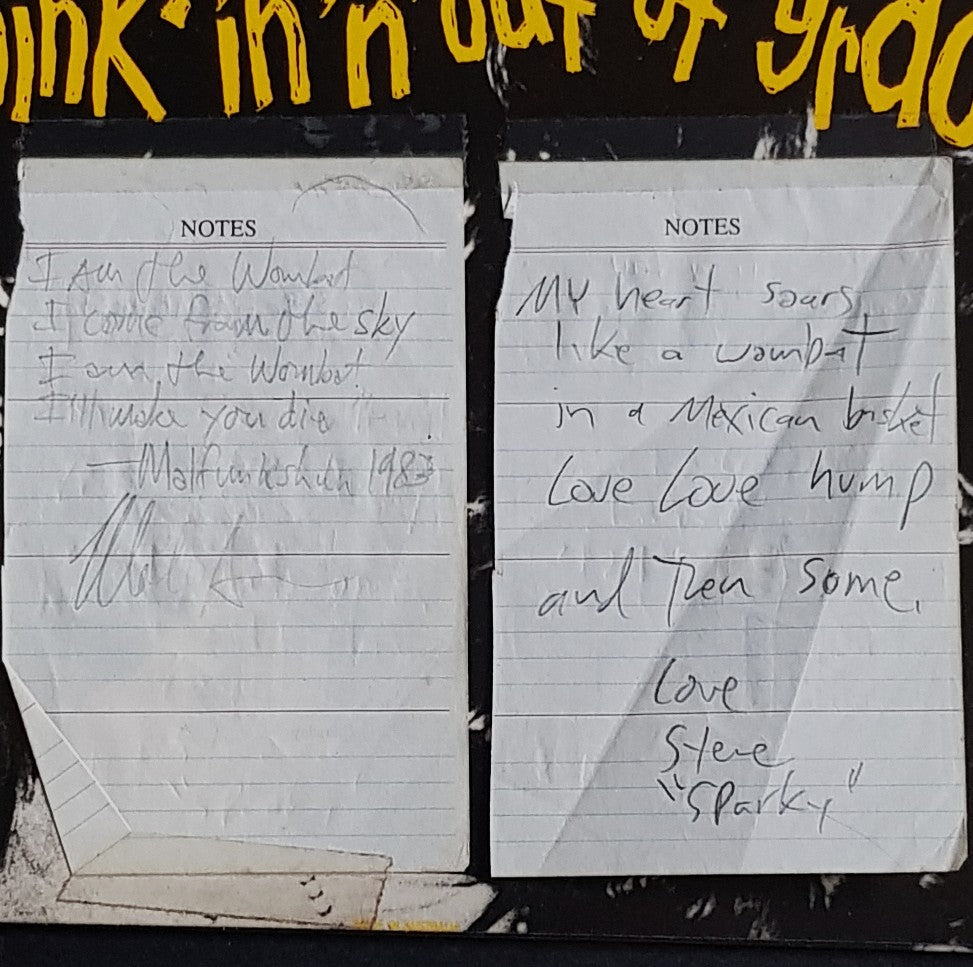 ink·in'n'out of grac
NOTES
I Am the Wombat
I come from the sky
I am the Wombat
I'll make you die
—Malfunkshun 1983
NOTES
My heart soars
like a wombat
in a Mexican basket
Love Love hump
and Then some.
Love
Steve
"Sparky"